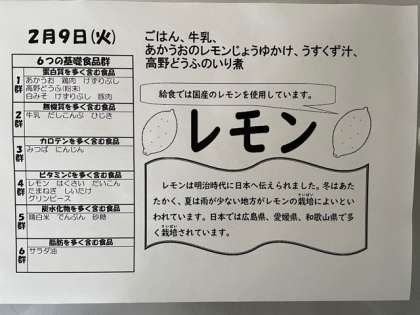 2月9日(火)
6つの基礎食品群
1群
蛋白質を多く含む食品
あかうお 鶏肉 けずりぶし
高野どうふ(粉末)
白みそ けずりぶし 豚肉
2群
無機質を多く含む食品
牛乳 だしこんぶ ひじき
3群
カロテンを多く含む食品
みつば にんじん
4群
ビタミンCを多く含む食品
レモン はくさい だいこん
たまねぎ しいたけ
グリンピース
5群
炭水化物を多く含む食品
精白米 でんぷん 砂糖
6群
脂肪を多く含む食品
サラダ油
ごはん、牛乳、
あかうおのレモンじょうゆかけ、うすくず汁、
高野どうふのいり煮
給食では国産のレモンを使用しています。
レモン
レモンは明治時代に日本へ伝えられました。冬はあた
たかく、夏は雨が少ない地方がレモンの栽培によいとい
われています。日本では広島県、愛媛県、和歌山県で多
く栽培されています。